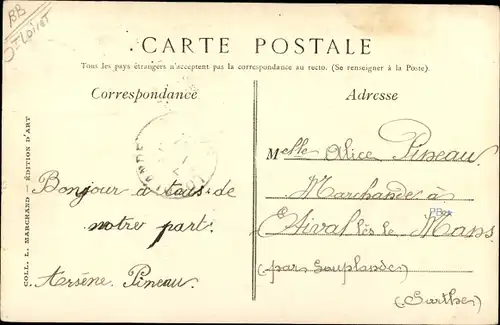 BB
CARTE POSTALE
Tous les pays étrangers n'acceptent pas la correspondance au recto. (Se renseigner à la Poste).
Correspondance
Adresse
COLL. L. MARCHAND — ÉDITION D'ART
Bonjour à tous de
notre part.
Arsène. Pineau.
Melle Alice Pineau.
Marchande à
Etival lès le Mans
(par Souplande)
(Sarthe)